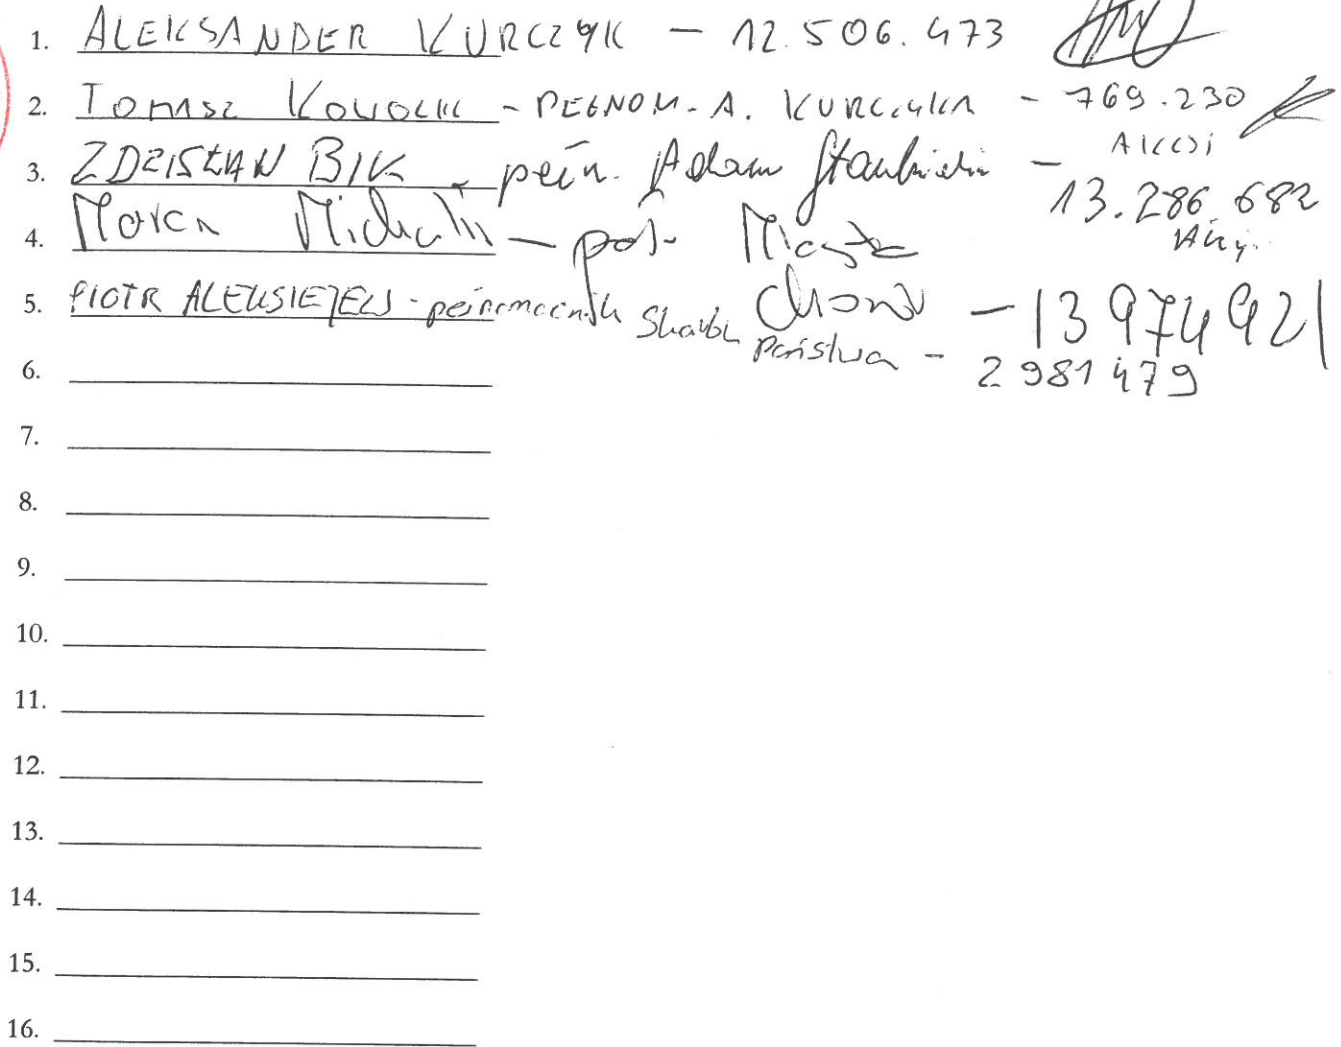 1. ALEKSANDER KURCZYK - 12.506.473
2. TOMASZ - PEŁNOM. A. KURCZYKA - 769.230
AKCJI
3. ZDZISŁAW BIK - pełn. Adam -
13.286.682
Akcji.
4. Michalik - Miasta
Chorzów - 13 974 921
5. PIOTR ALEKSIEJEW - pełnomocnik Skarbu Państwa - 2 981 479
6.
7.
8.
9.
10.
11.
12.
13.
14.
15.
16.